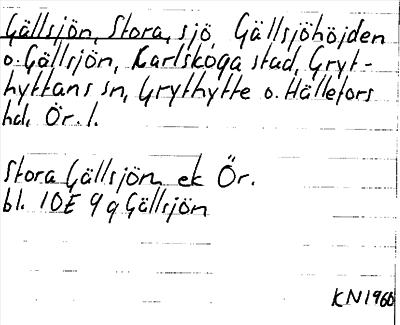 Gällsjön, Stora, sjö, Gällsjöhöjden
o. Gällsjön, Karlskoga stad, Gryt-
hyttans sn, Grythytte o. Hällefors
hd, Ör. l.
Stora Gällsjön ek Ör.
bl. 10E 9g Gällsjön
KN 1966